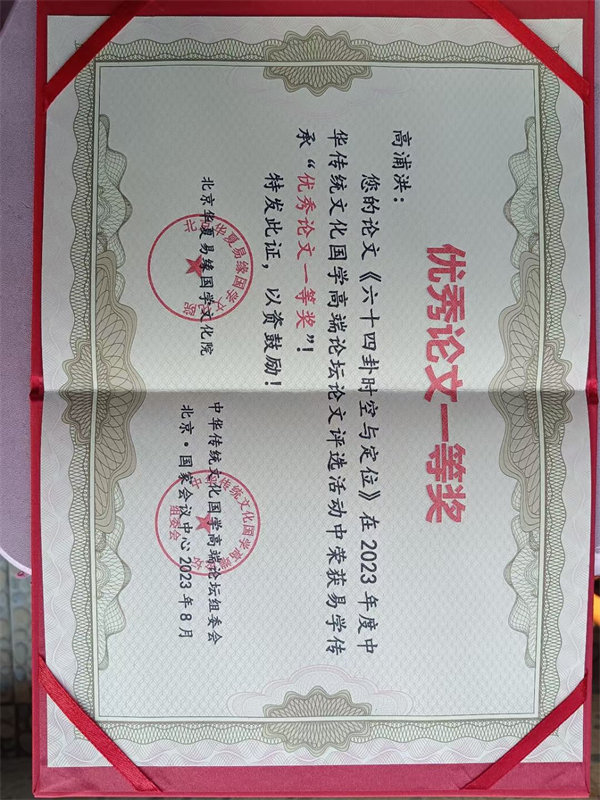 优秀论文一等奖
高浦洪：
您的论文《六十四卦时空与定位》在2023年度中
华传统文化国学高端论坛论文评选活动中荣获易学传
承“优秀论文一等奖”！
特发此证，以资鼓励！
北京华夏易缘国学文化院
中华传统文化国学高端论坛组委会
北京·国家会议中心2023年8月
组委会